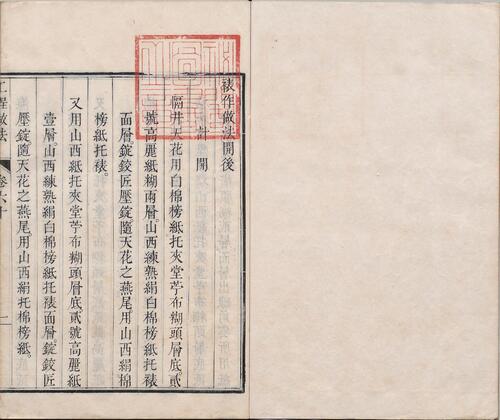 裱作做法開後
計開
隔井天花用白棉榜紙托夾堂苧布糊頭層底貳
號高麗紙糊兩層山西練熟絹白棉榜紙托裱
面層錠鉸匠壓錠隨天花之燕尾用山西絹棉
榜紙托裱
又用山西紙托夾堂苧布糊頭層底貳號高麗紙
壹層山西練熟絹白棉榜紙托裱面層錠鉸匠
壓錠隨天花之燕尾用山西絹托棉榜紙
工程做法 卷六十 一